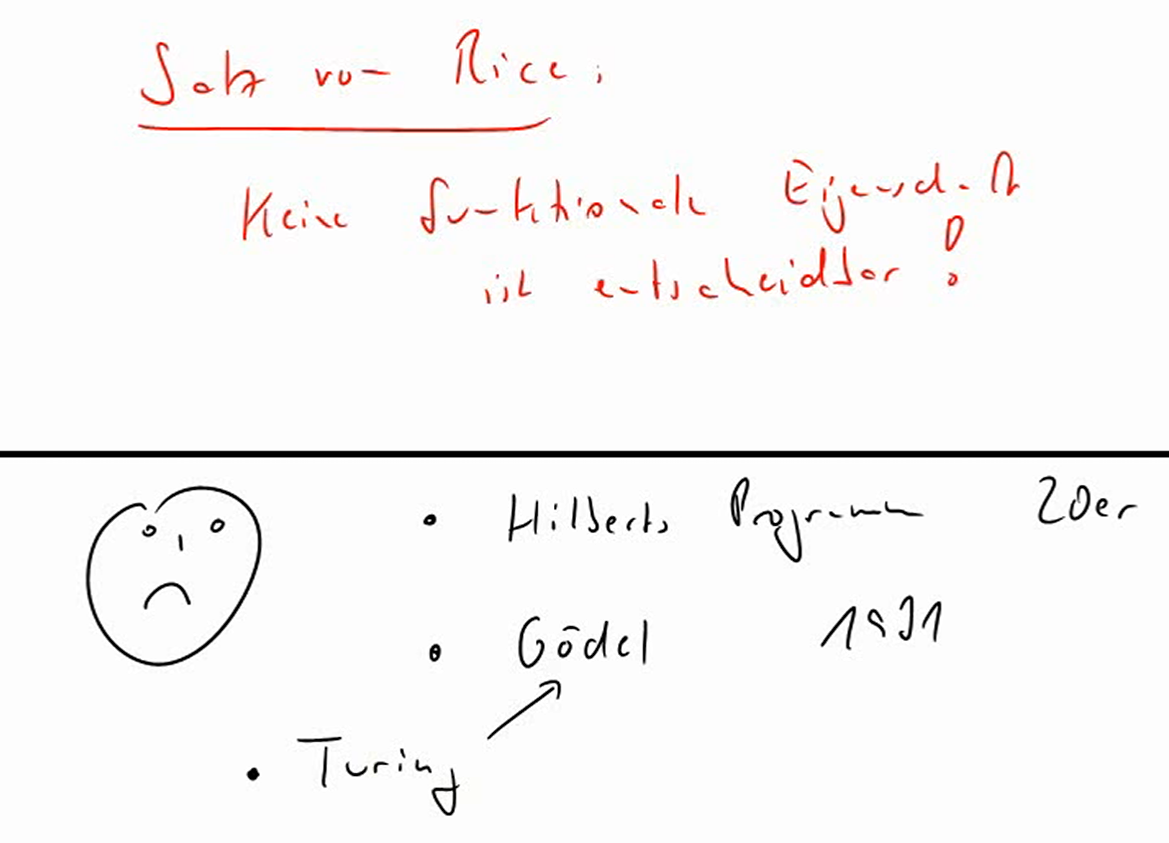 Satz von Rice:
Keine funktionale Eigenschaft
ist entscheidbar!
• Hilberts Programm 20er
• Gödel 1931
• Turing